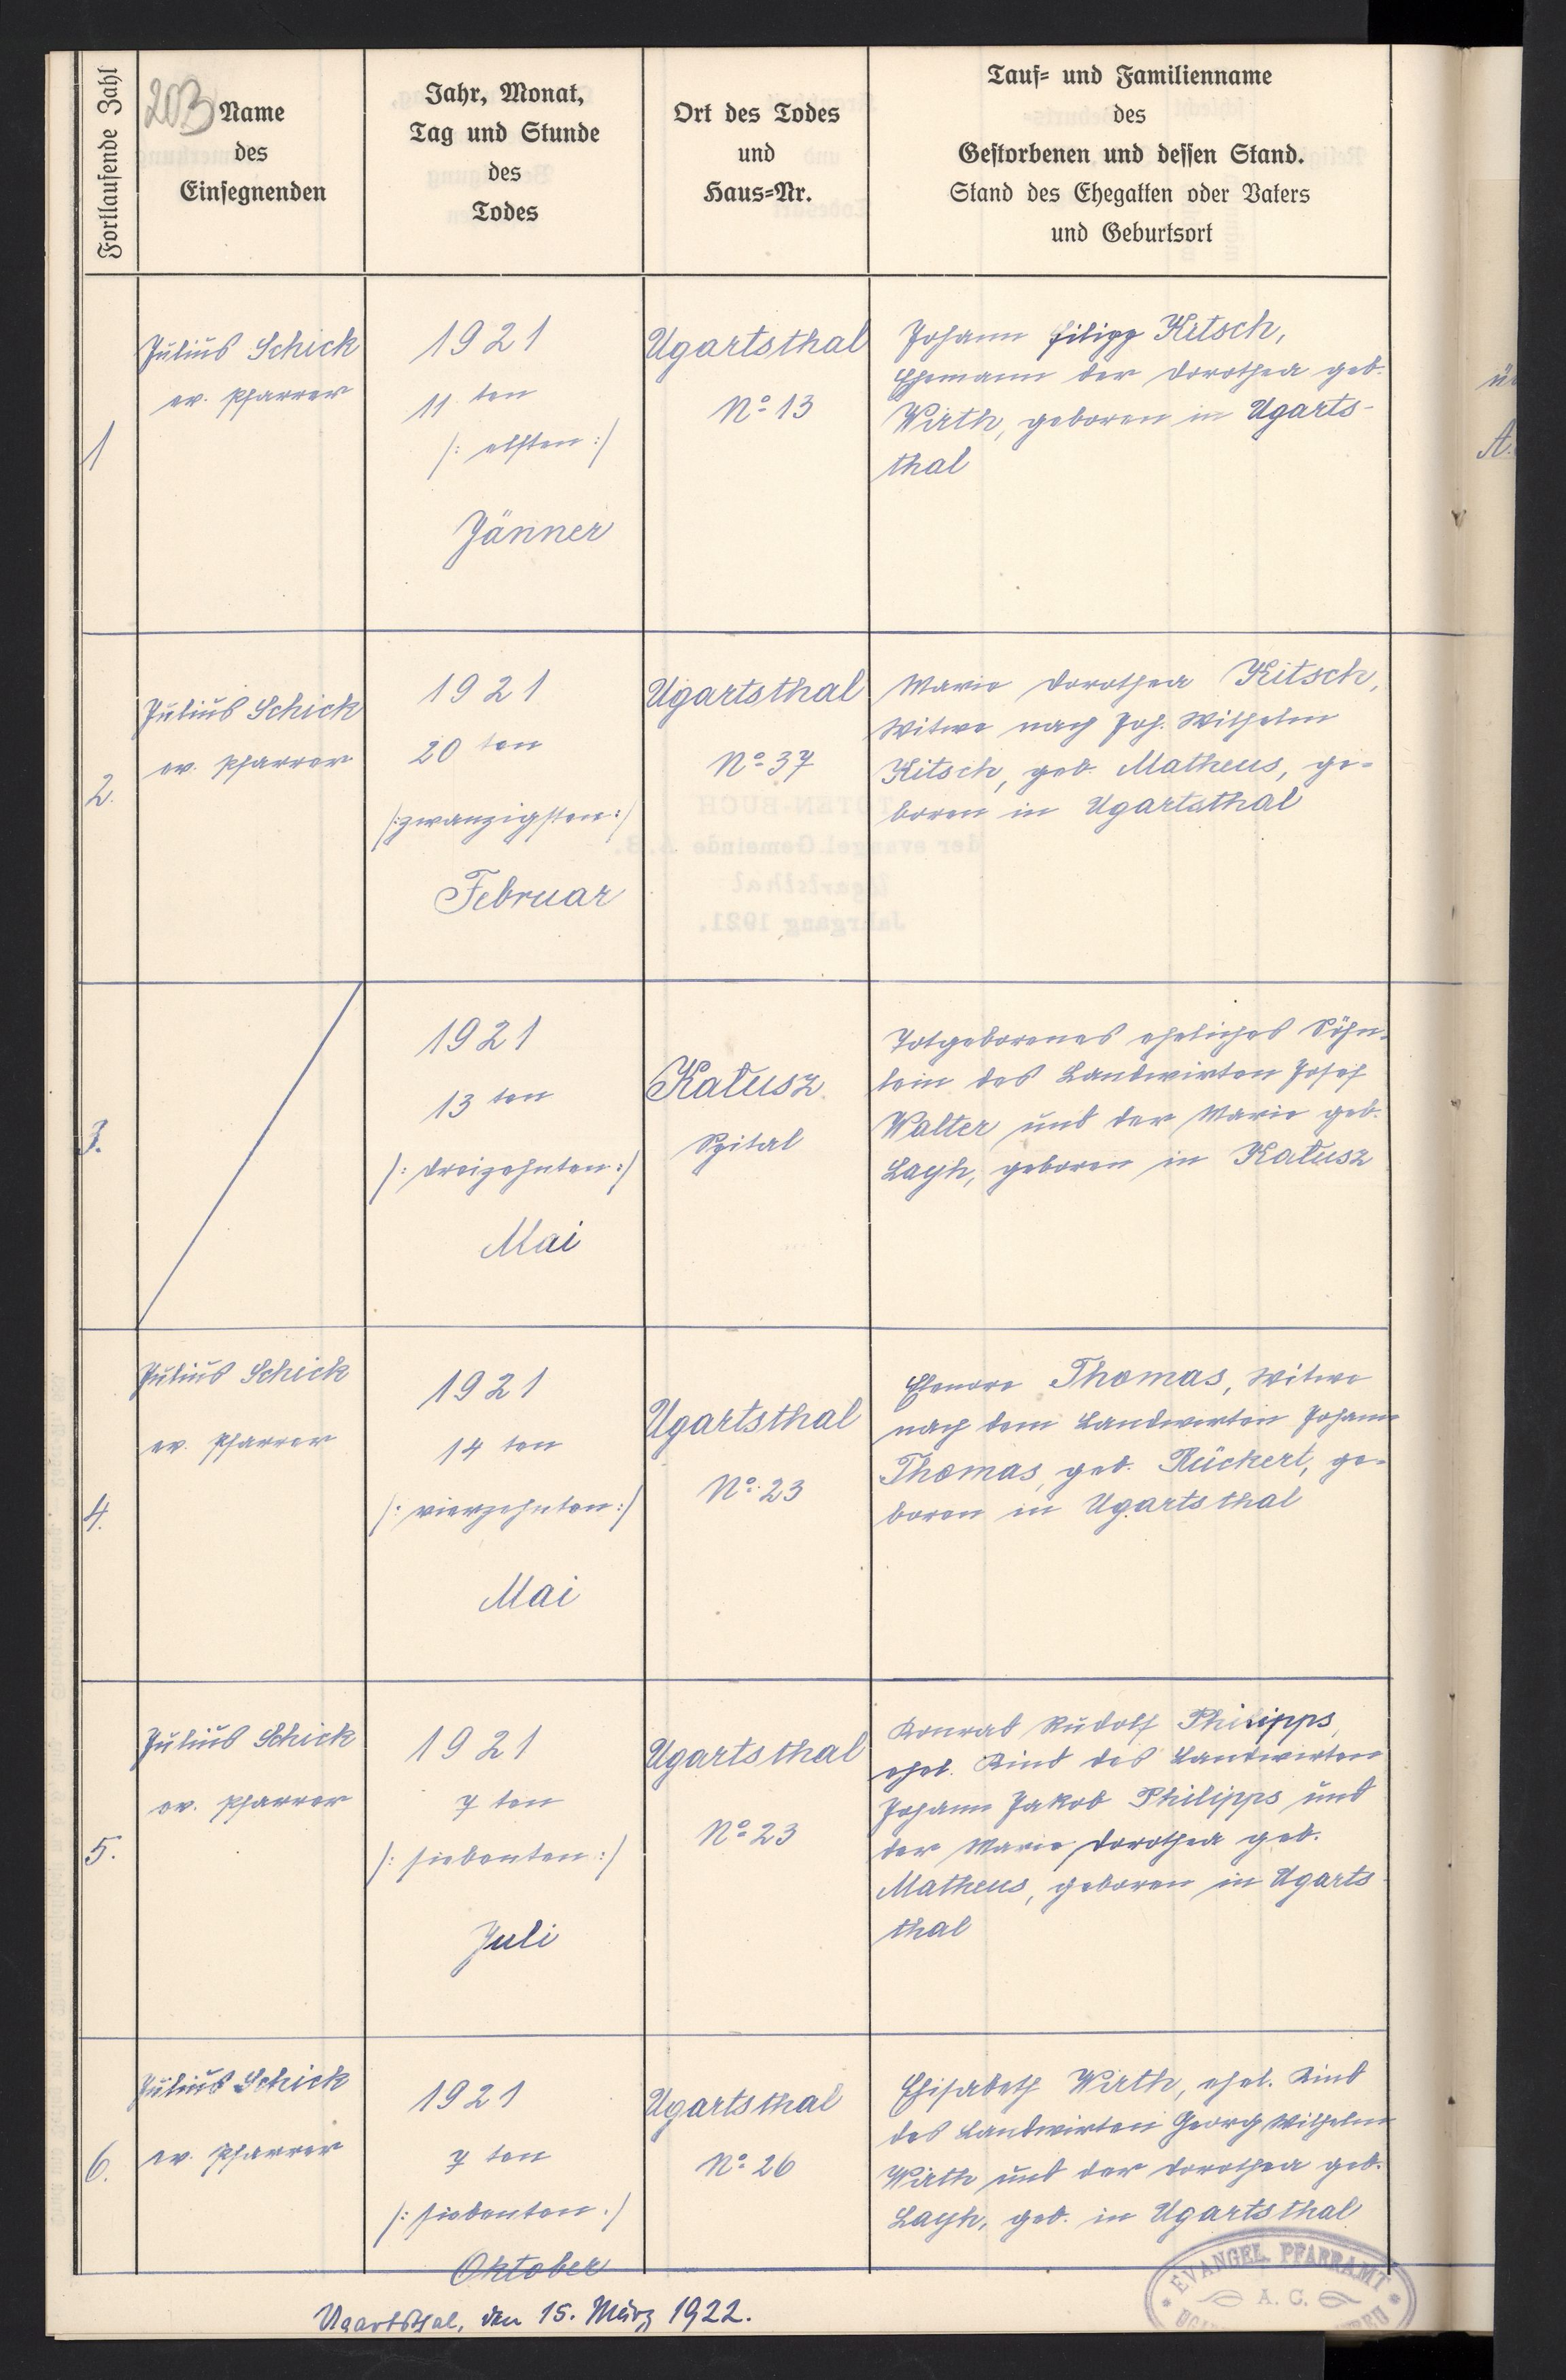 Fortlaufende Zahl
203
Name
des
Einsegnenden
Jahr, Monat,
Tag und Stunde
des
Todes
Ort des Todes
und
Haus=Nr.
Tauf= und Familienname
des
Gestorbenen und dessen Stand.
Stand des Ehegatten oder Vaters
und Geburtsort
1
Julius Schick
ev. Pfarrer
1921
11 ten
/: elften :/
Jänner
Ugartsthal
No 13
Johann Filipp Kitsch,
Ehemann der Dorothea geb.
Wirth, geboren in Ugarts-
thal
2.
Julius Schick
ev. Pfarrer
1921
20 ten
/: zwanzigsten :/
Februar
Ugartsthal
No 37
Marie Dorothea Kitsch,
Witwe nach Joh. Wilhelm
Kitsch, geb. Matheus, ge-
boren in Ugartsthal
3.
1921
13 ten
/: dreizehnten :/
Mai
Kałusz
Spital
Totgeborenes eheliches Söhn-
lein des Landwirten Josef
Walter und der Marie geb.
Layh, geboren in Kałusz
4.
Julius Schick
ev. Pfarrer
1921
14 ten
/: vierzehnten :/
Mai
Ugartsthal
No 23
Elenore Thomas, Witwe
nach dem Landwirten Johann
Thomas, geb. Rückert, ge-
boren in Ugartsthal
5.
Julius Schick
ev. Pfarrer
1921
7 ten
/: siebenten :/
Juli
Ugartsthal
No 23
Konrad Rudolf Philipps,
ehel. Kind des Landwirten
Johann Jakob Philipps und
der Marie Dorothea geb.
Matheus, geboren in Ugarts-
thal
6.
Julius Schick
ev. Pfarrer
1921
7 ten
/: siebenten :/
Oktober
Ugartsthal
No 26
Elisabeth Wirth, ehel. Kind
des Landwirten Georg Wilhelm
Wirth und der Dorothea geb.
Layh, geb. in Ugartsthal
Ugartsthal, den 15. März 1922.
EVANGEL. PFARRAMT
A. C.